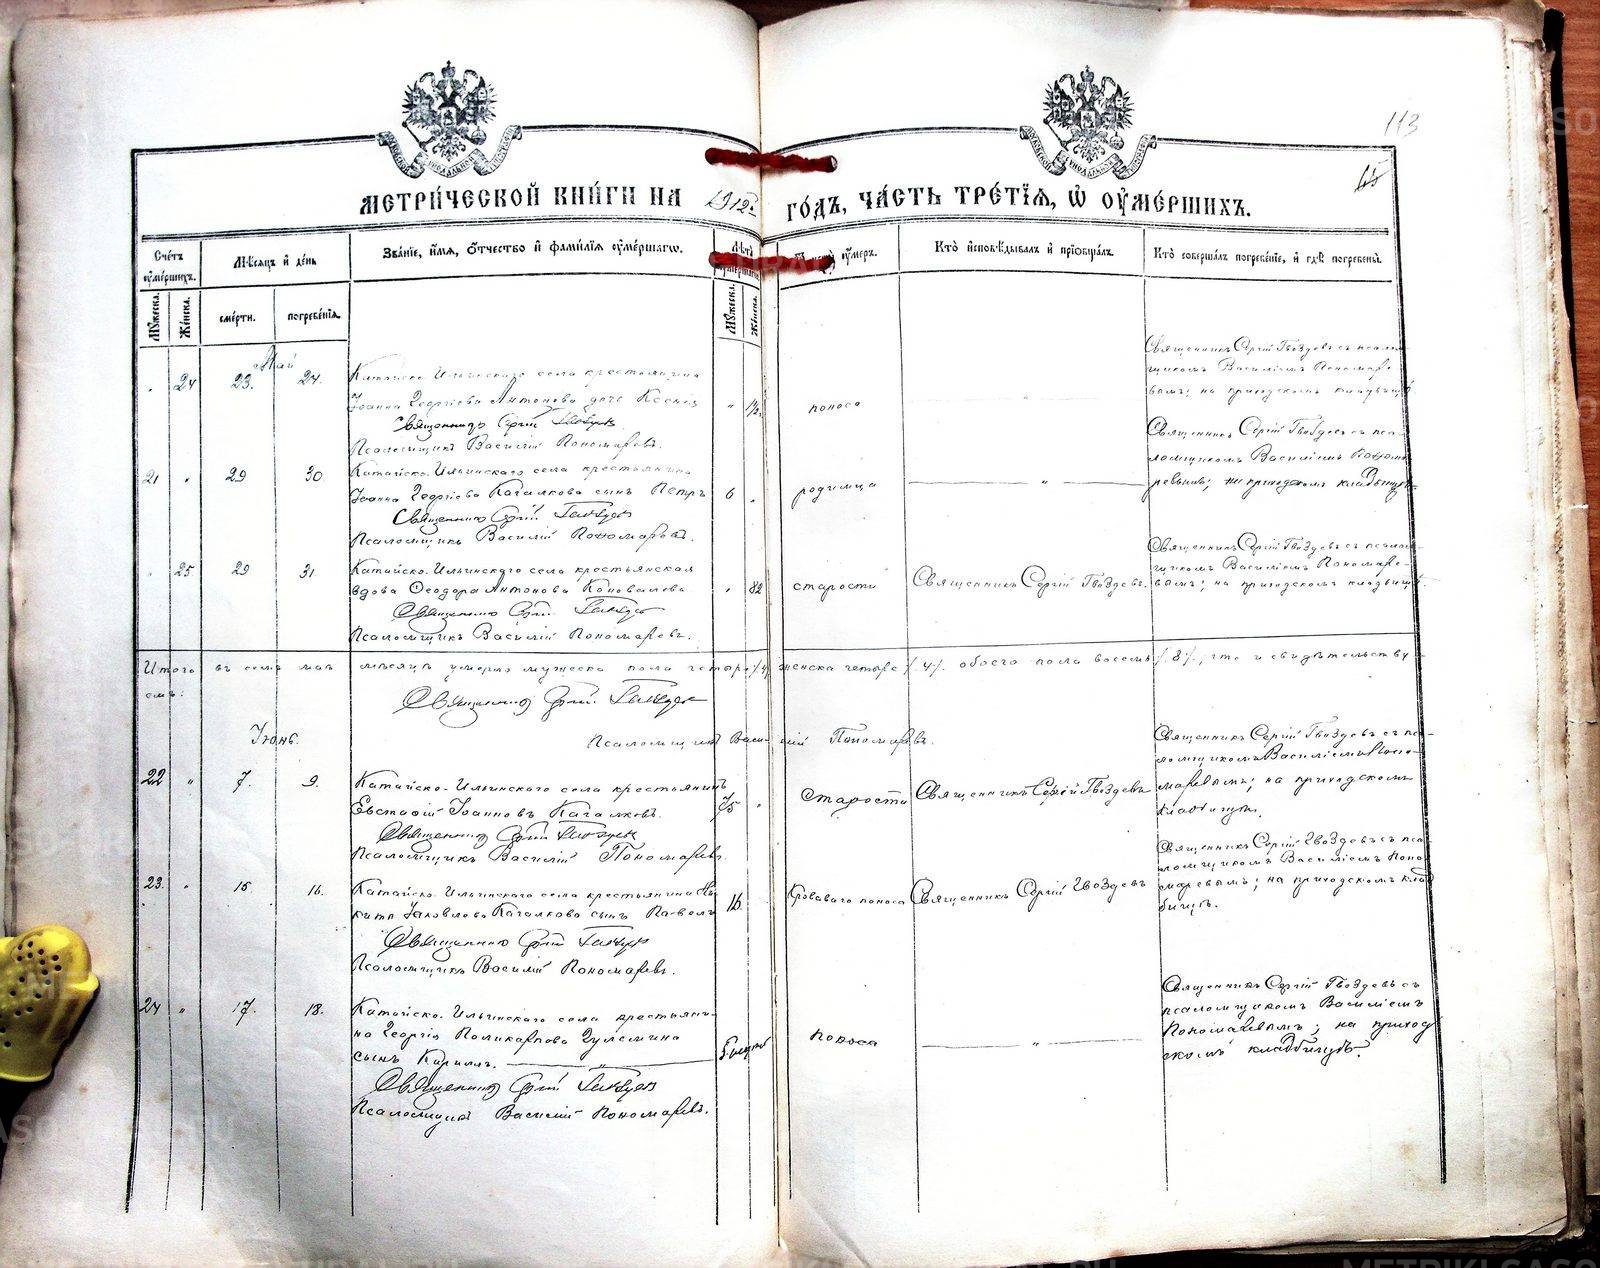 113
МЕТРИ́ЧЕСКОЙ КНИ́ГИ НА 1912й ГО́ДЪ, ЧА́СТЬ ТРЕ́ТЇѦ, Ѡ҆ ОУ҆МЕ́РШИХЪ.
Сче́тъ оу҆ме́ршихъ.
Мѣ́сѧцъ и҆ де́нь
Зва́нїе, и҆́мѧ, ѻ҆́тчество и҆ фами́лїѧ оу҆ме́ршагѡ.
Лѣ́та
оу҆́меръ.
Кто̀ и҆сповѣ́дывалъ и҆ прїѡбща́лъ.
Кто̀ соверша́лъ погребе́нїе, и҆ гдѣ̀ погребены̀.
Мꙋ́жеска.
Же́нска.
сме́рти.
погребе́нїѧ.
Мꙋ́жеска.
Же́нска.
Май
24 23. 24.
Катайско-Ильинскаго села крестьянина
Іоанна Георгіева Антонова дочь Ксенія
Священникъ Сергій Гвоздевъ
Псаломщикъ Василій Пономаревъ.
" 1/2
поноса
"
Священникъ Сергій Гвоздевъ съ псалом-
щикомъ Василіемъ Пономаре-
вымъ; на приходскомъ кладбищѣ
21 " 29 30
Катайско-Ильинскаго села крестьянина
Іоанна Георгіева Качалкова сынъ Петръ
Священникъ Сергій Гвоздевъ
Псаломщикъ Василій Пономаревъ.
6 "
родимца
"
Священникъ Сергій Гвоздевъ съ пса-
ломщикомъ Василіемъ Понома-
ревымъ; на приходскомъ кладбищѣ.
" 25 29 31
Катайско-Ильинскаго села крестьянская
вдова Ѳеодора Антонова Коновалова
Священникъ Сергій Гвоздевъ
Псаломщикъ Василій Пономаревъ.
" 82
старости
Священникъ Сергій Гвоздевъ.
Священникъ Сергій Гвоздевъ съ псалом-
щикомъ Василіемъ Пономаре-
вымъ; на приходскомъ кладбищѣ
Итого въ семъ мая мѣсяцѣ умерло мужеска пола четыре /4/ женска четыре /4/. обоего пола восемь /8/, что и свидѣтельству-
емъ:
Священникъ Сергій Гвоздевъ
Псаломщикъ Василій Пономаревъ.
Іюнь.
22 " 7. 9.
Катайско-Ильинскаго села крестьянинъ
Евстафій Іоанновъ Качалковъ.
Священникъ Сергій Гвоздевъ
Псаломщикъ Василій Пономаревъ.
75 "
Старости
Священникъ Сергій Гвоздевъ
Священникъ Сергій Гвоздевъ съ пса-
ломщикомъ Василіемъ Поно-
маревымъ; на приходскомъ
кладбищѣ.
23. " 15 16.
Катайско-Ильинскаго села крестьянина Ни-
киты Іаковлева Качалкова сынъ Павелъ
Священникъ Сергій Гвоздевъ
Псаломщикъ Василій Пономаревъ.
16
Кроваваго поноса
Священникъ Сергій Гвоздевъ
Священникъ Сергій Гвоздевъ съ пса-
ломщикомъ Василіемъ Поно-
маревымъ; на приходскомъ клад-
бищѣ.
24 " 17. 18.
Катайско-Ильинскаго села крестьяни-
на Георгія Поликарпова
сынъ Кириллъ. "
Священникъ Сергій Гвоздевъ
Псаломщикъ Василій Пономаревъ.
поноса
"
Священникъ Сергій Гвоздевъ съ
псаломщикомъ Василіемъ
Пономаревымъ; на приход-
скомъ кладбищѣ.